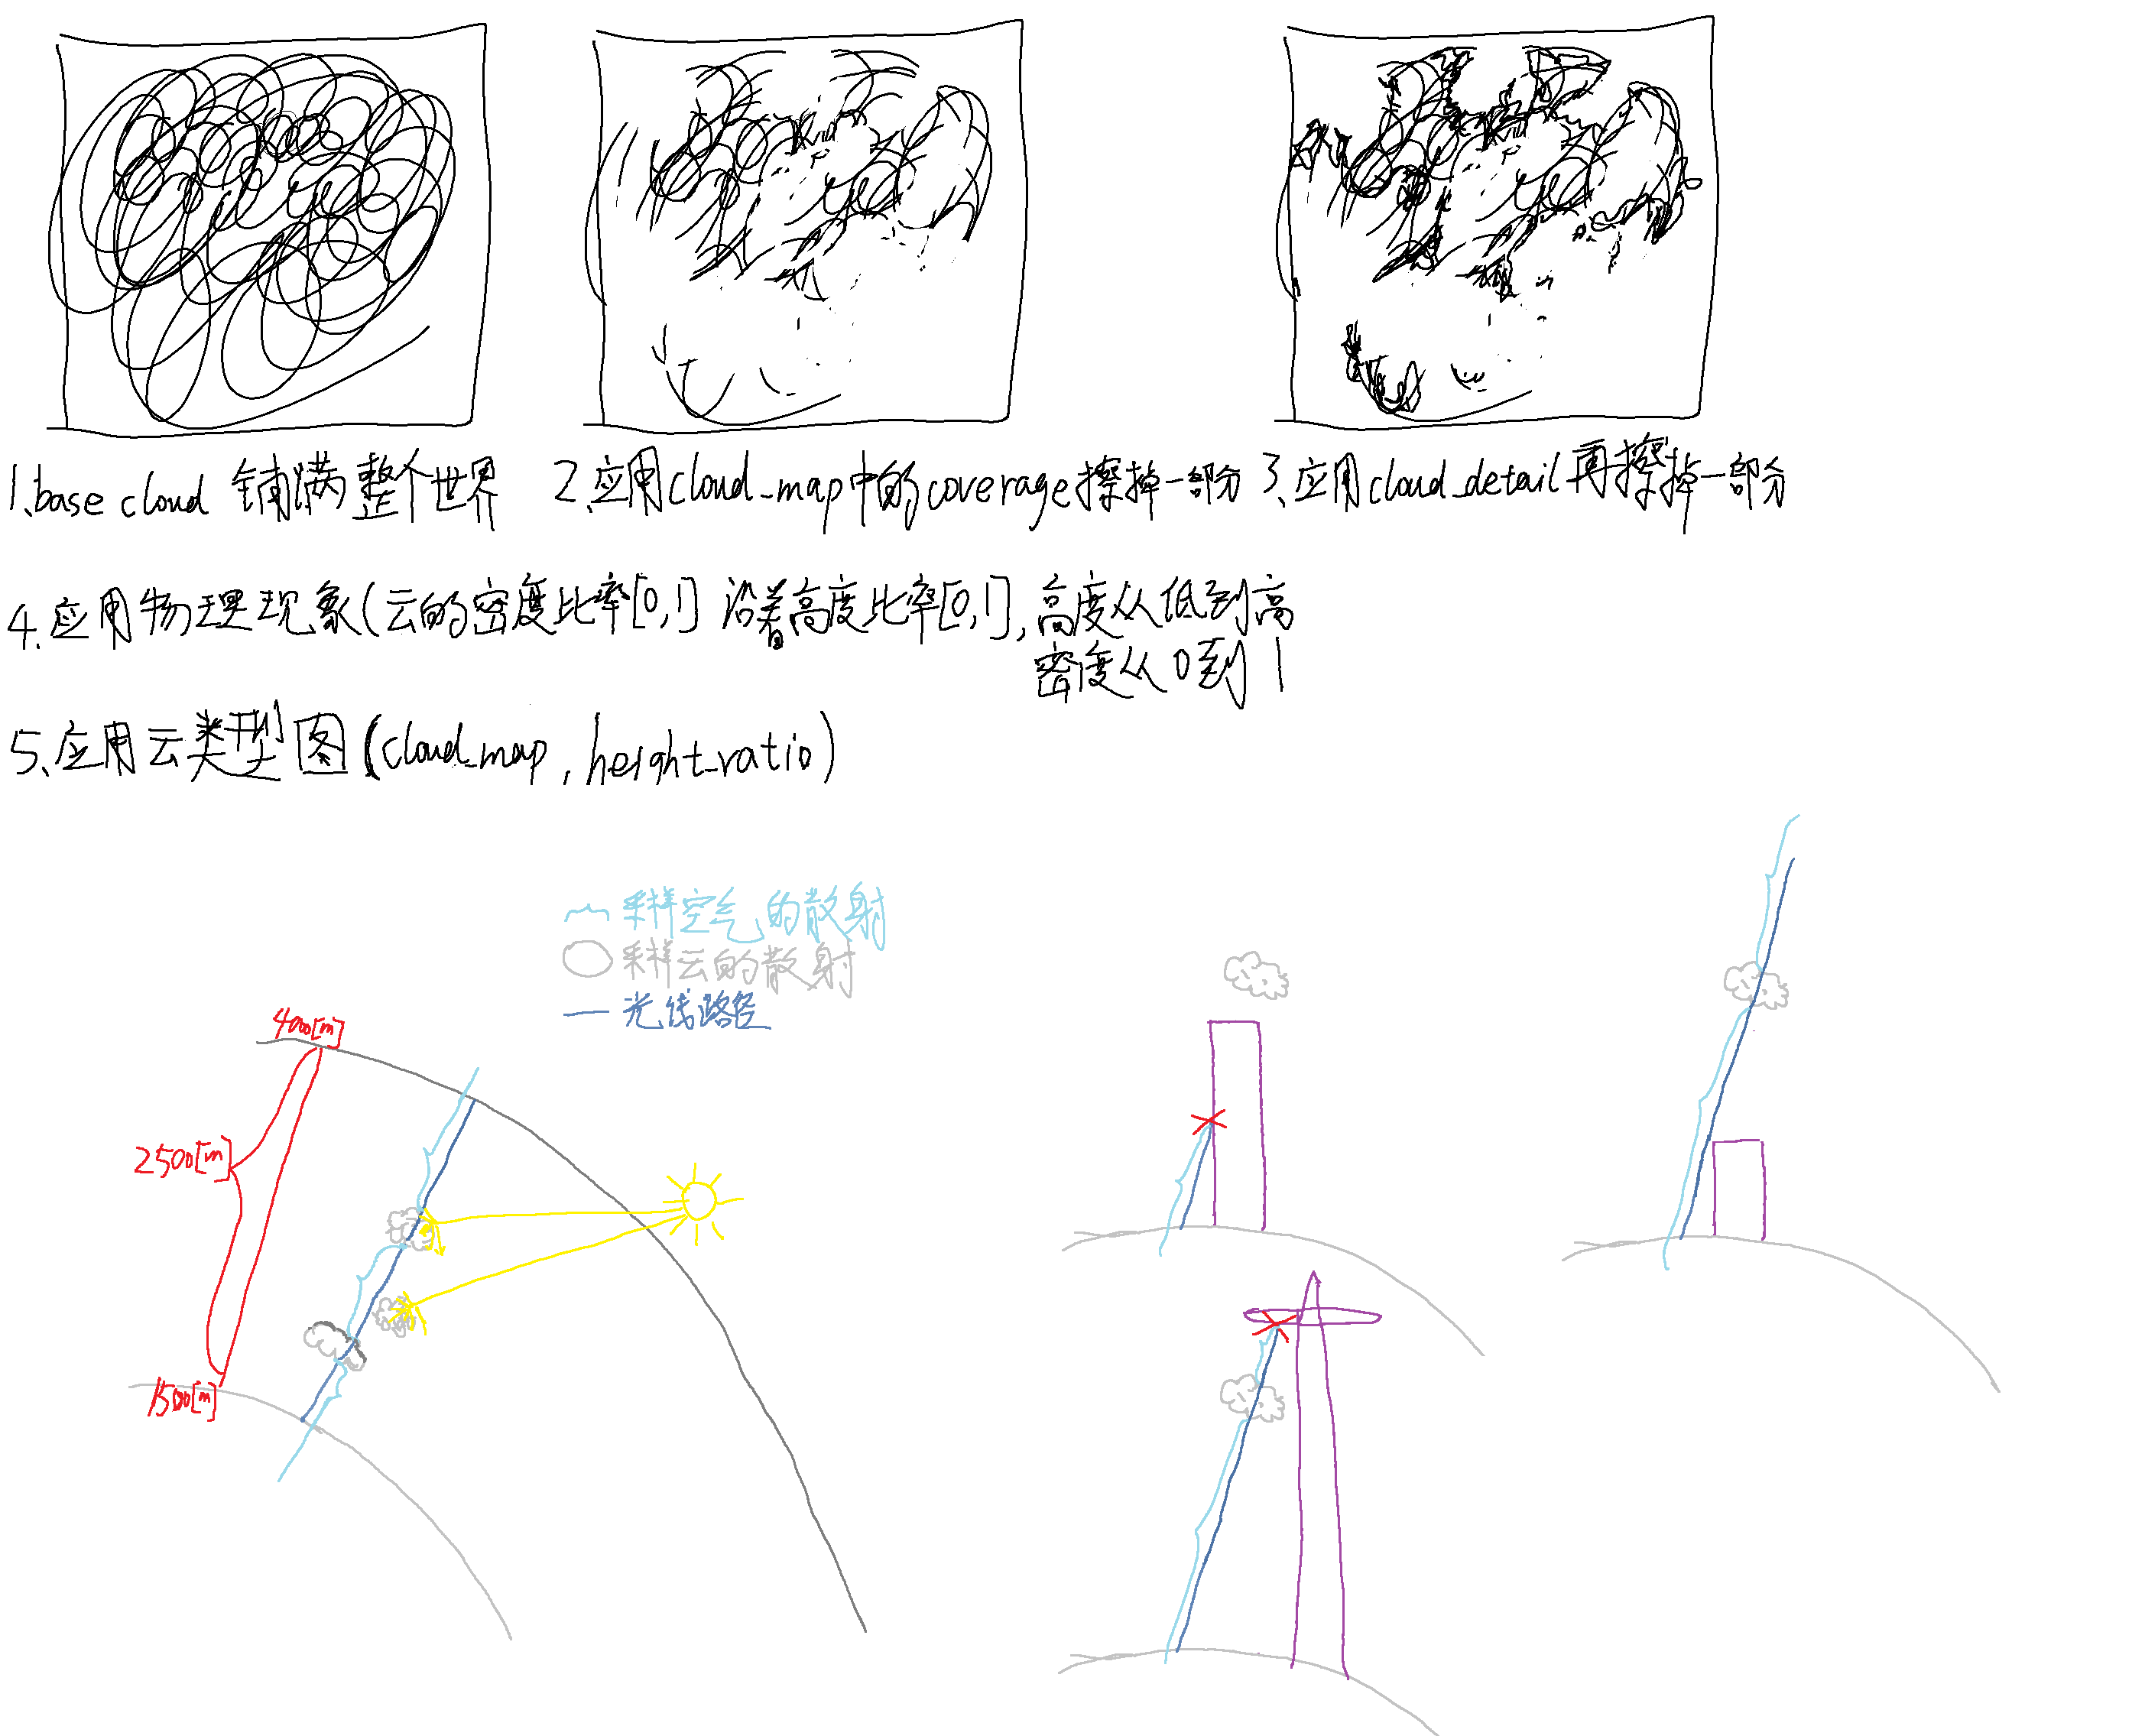 1.base cloud 铺满整个世界
2.应用cloud_map中的coverage擦掉一部分
3.应用cloud_detail再擦掉一部分
4.应用物理现象(云的密度比率[0,1] 沿着高度比率[0,1],高度从低到高
密度从0到1
5.应用云类型图(cloud_map, height_ratio)
采样空气的散射
采样云的散射
光线路径
4000[m]
2500[m]
1500[m]